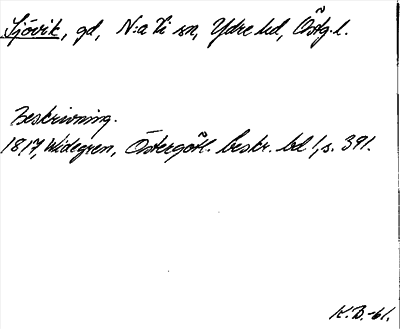 Sjövik, gd, N:a Vi sn, Ydre hd, Östg. l.
Beskrivning.
1817, Widegren, Östergötl. beskr. bd 1, s. 391.
K.B.-61.